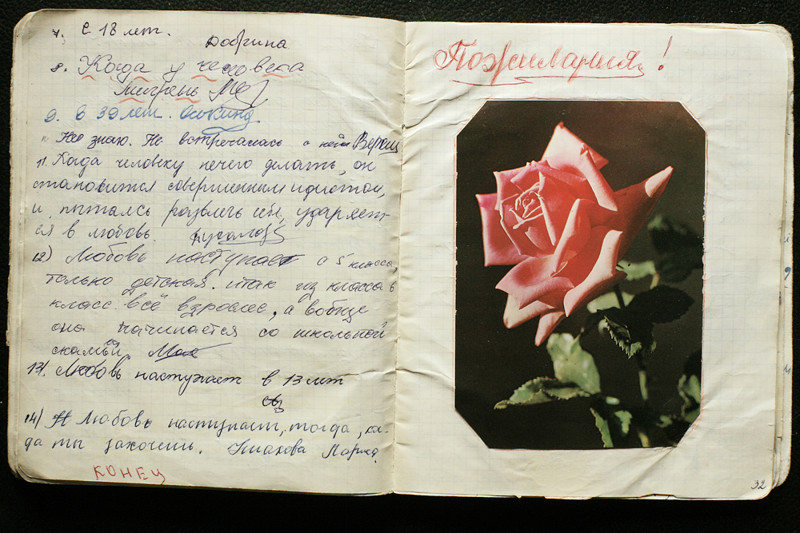 7. С 18 лет.
Добрина
8. Когда у человека
мигрень
9. В 39 лет.
Не знаю. Не встречалась с ней
11. Когда человеку нечего делать, он
становится совершенным идиотом,
и, пытаясь развлечь себя, ударяет-
ся в любовь.
12) Любовь наступает с 5 класса,
только детская. итак из класса в
класс всё взрослее, а вобще
она начинается со школьной
скамьи.
13). Любовь наступает в 13 лет
14) Любовь наступает, тогда, ко-
да ты захочешь. Ушакова Марина.
КОНЕЦ
Пожилария!
32